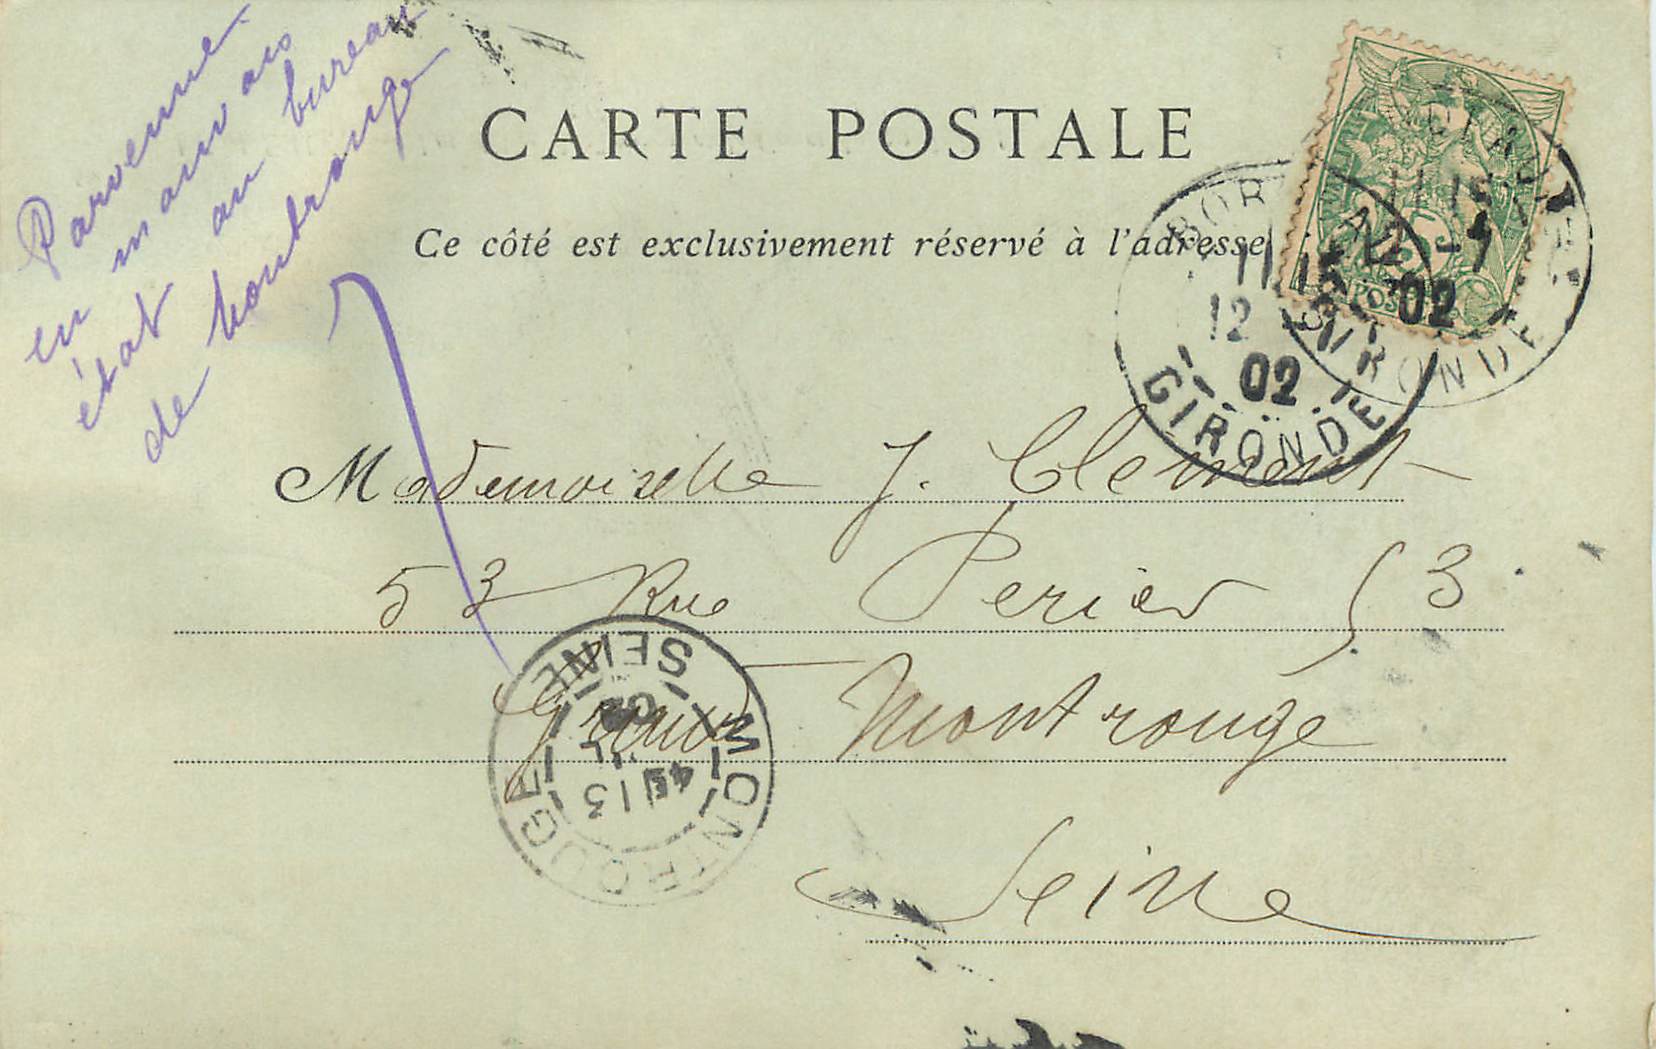 Parvenue
en mauvais
état au bureau
de Montrouge
CARTE POSTALE
Ce côté est exclusivement réservé à l'adresse
Mademoiselle J. Clement
53 Rue Perier 53
Grand Montrouge
Seine
BORDEAUX
12
02
GIRONDE
02
GIRONDE
POSTES
MONTROUGE
SEINE
13